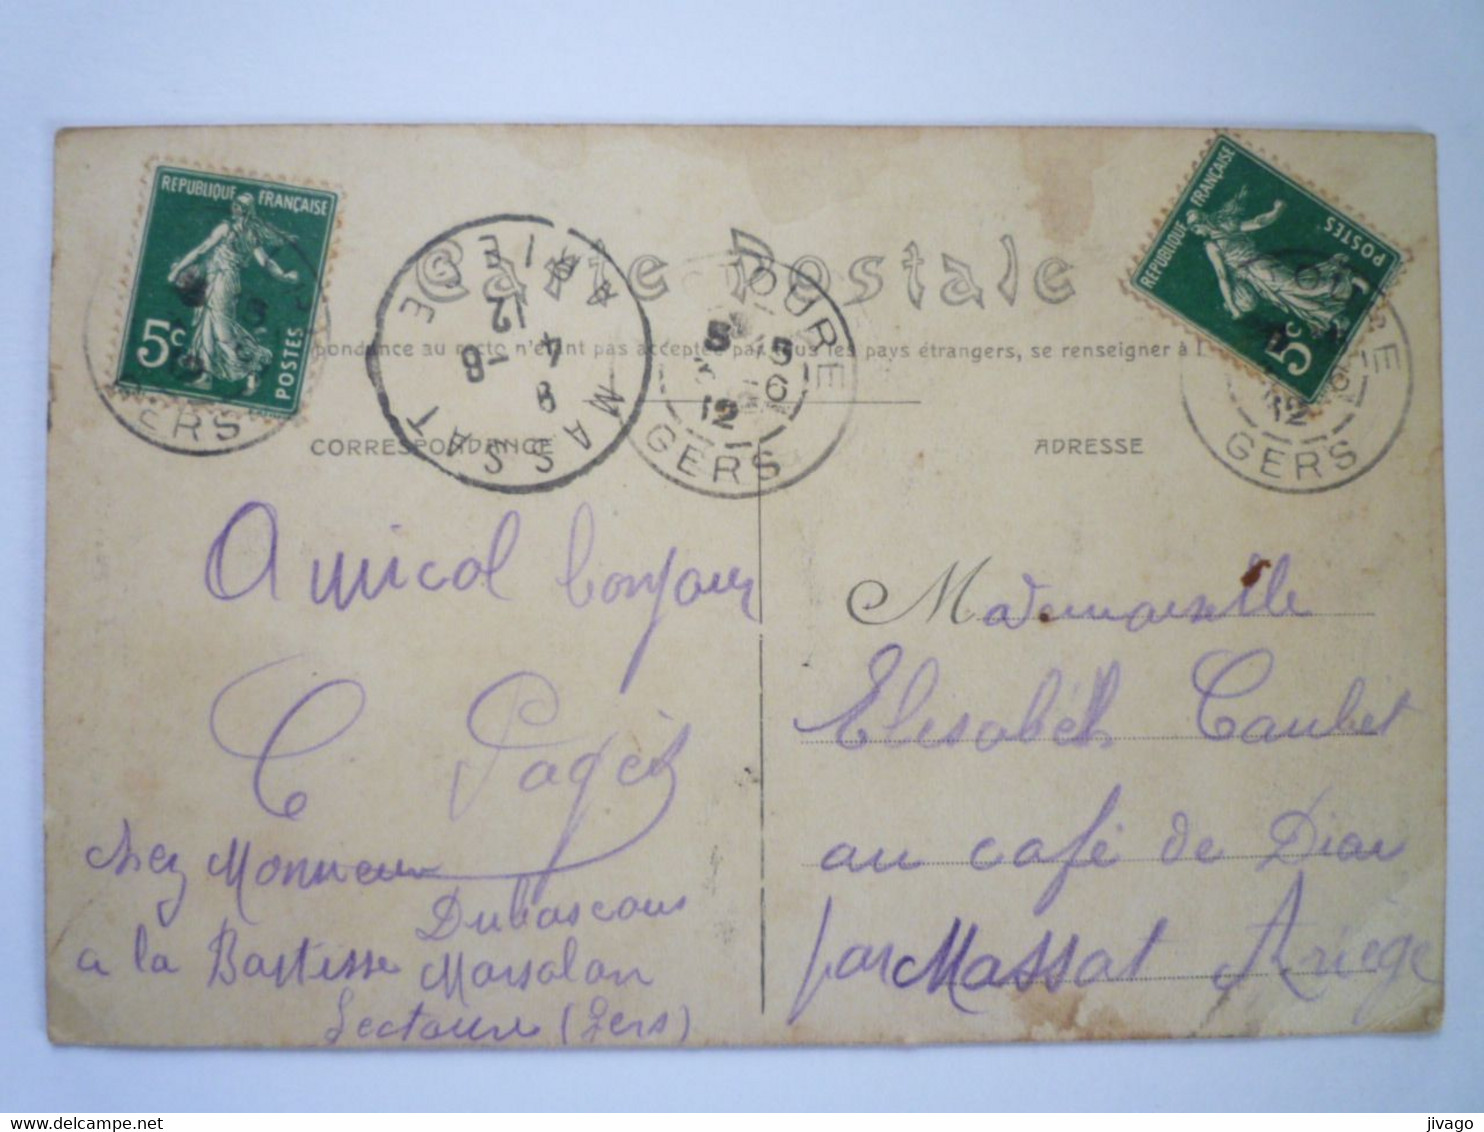 REPUBLIQUE FRANÇAISE
5c
POSTES
GERS
Carte Postale
pondance au recto n'étant pas acceptée par tous les pays étrangers, se renseigner à l
MASSAT
ARIEGE
8 -8
4
12
OURE
GERS
12
REPUBLIQUE FRANÇAISE
5c
POSTES
GERS
12
CORRESPONDANCE
ADRESSE
Amical bonjour
C Pagès
chez Monsieur
Dubascous
a la Bastisse Marsolan
Lectoure (Gers)
Mademoiselle
Elisabeth Caubet
au café de Biau
par Massat Ariège
jivago